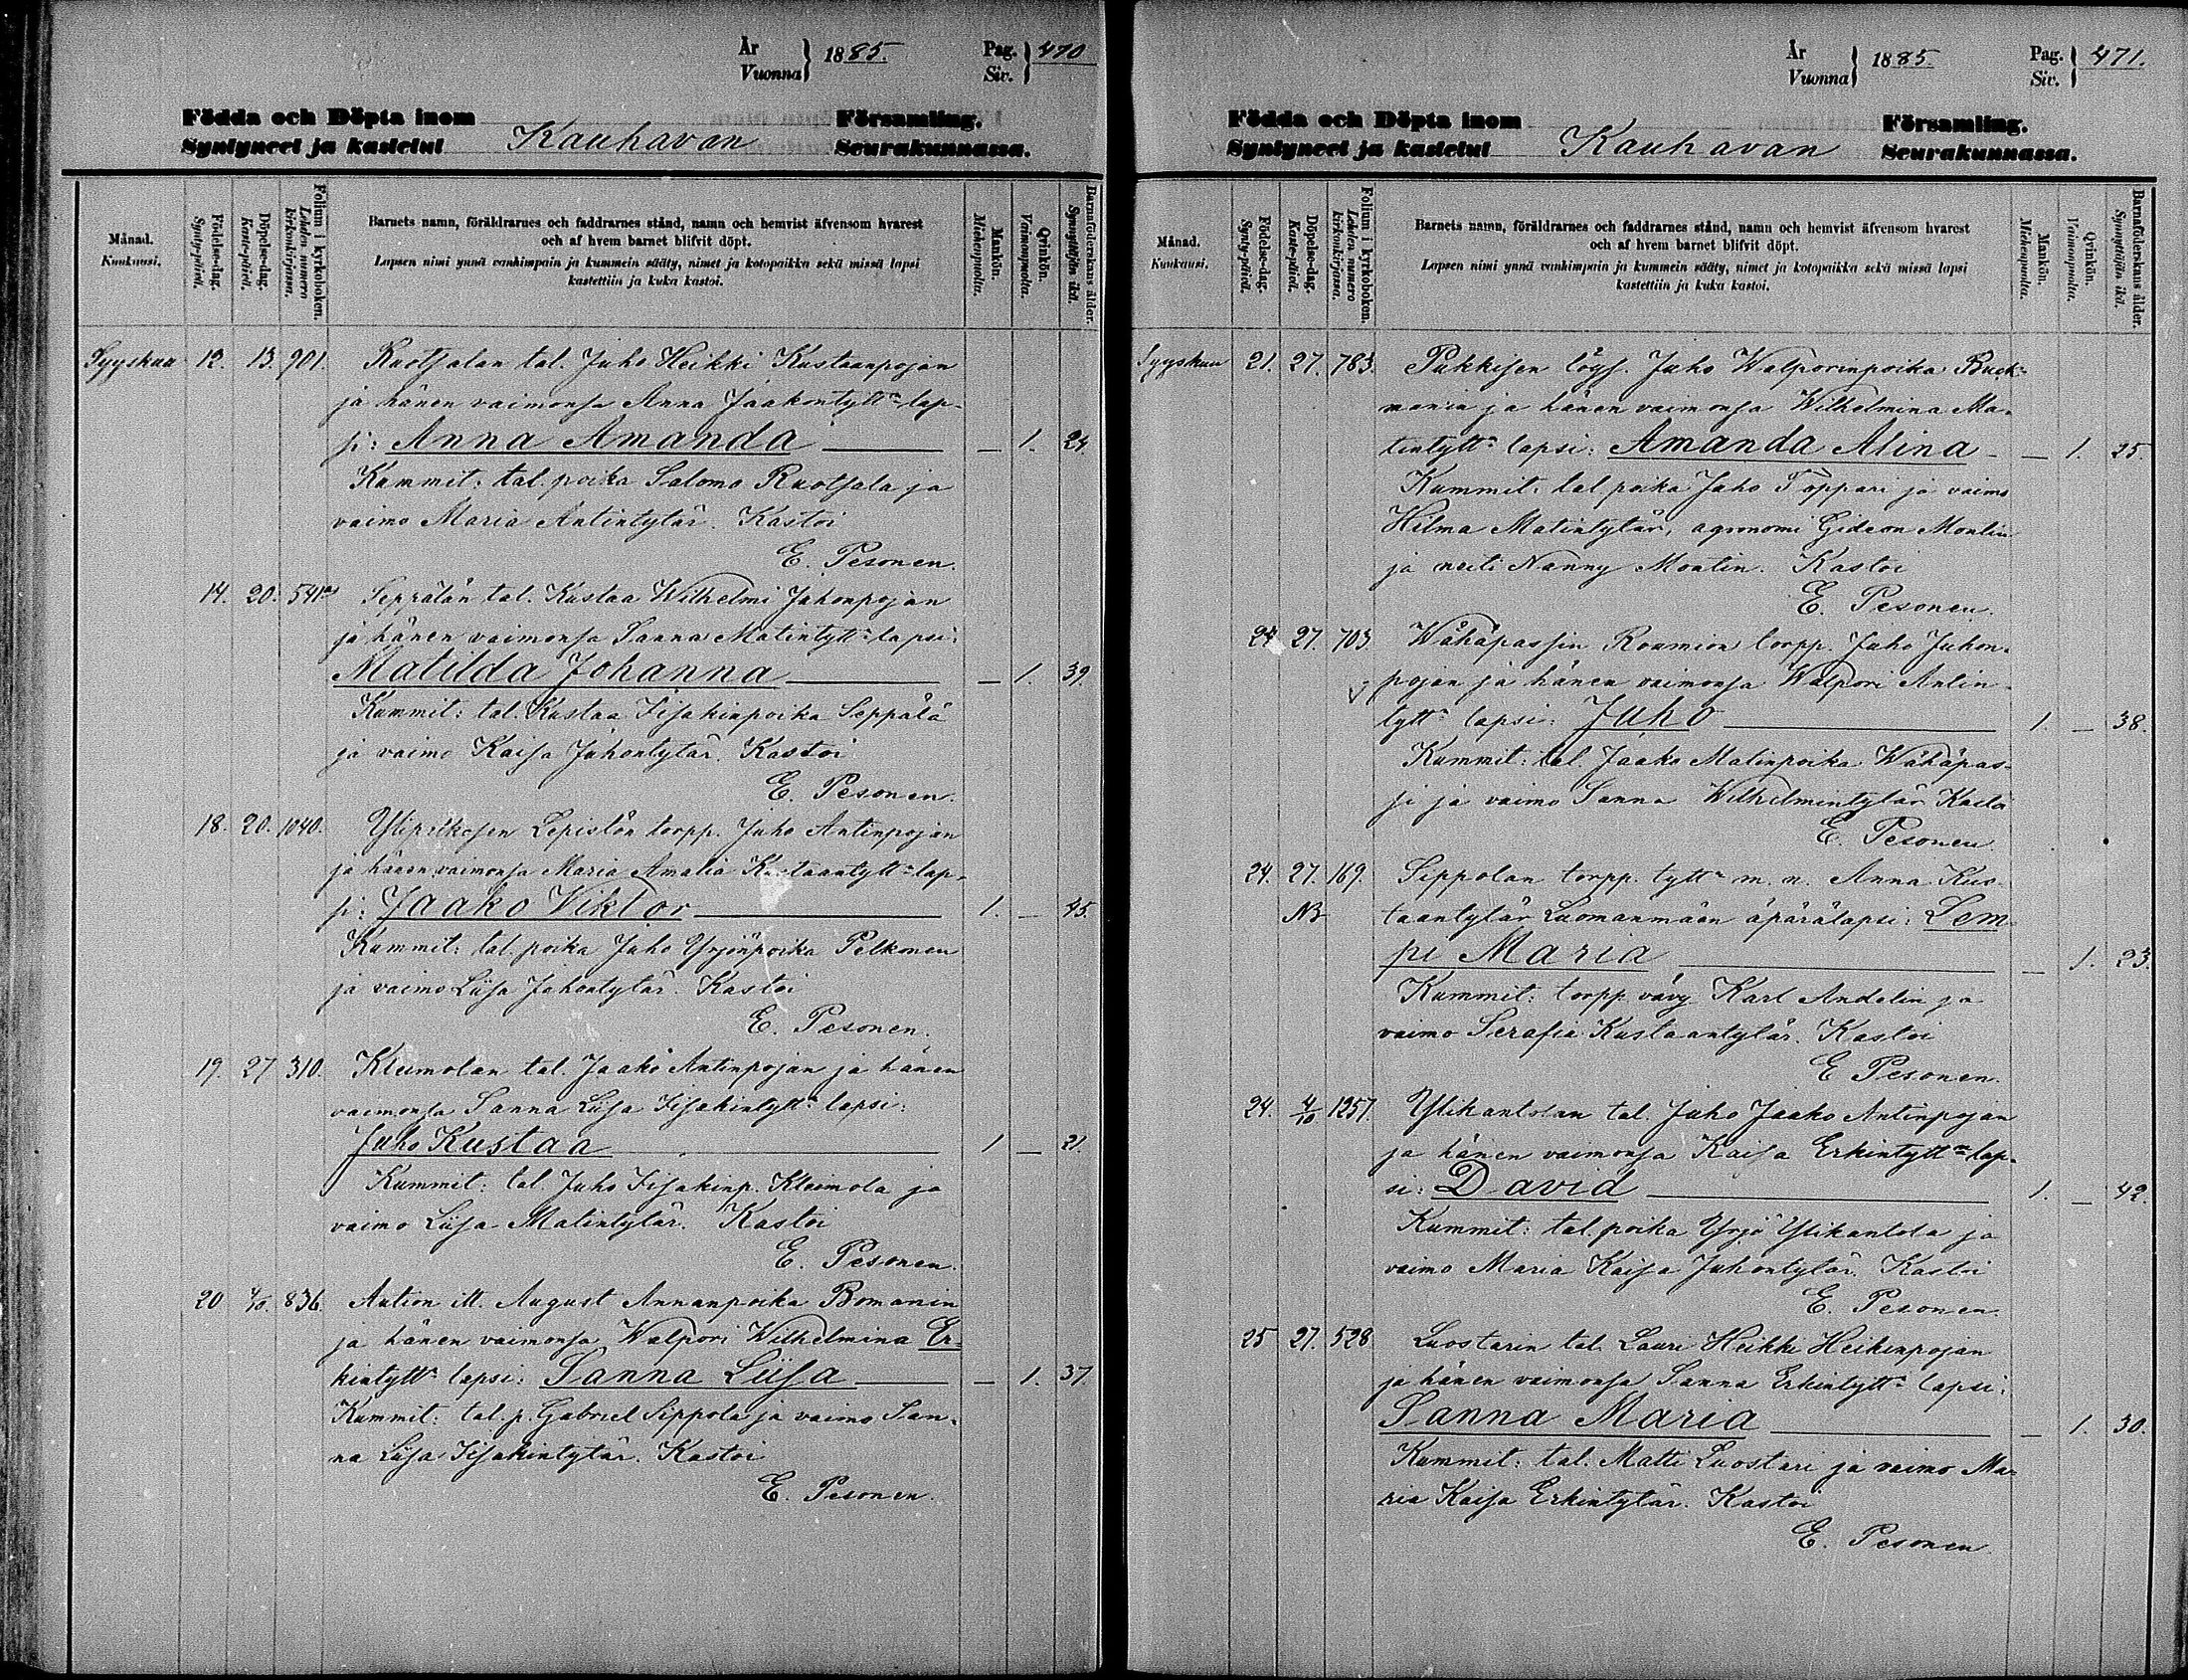 År
Vuonna } 1885.
Pag.
Siv. } 470
Födda och Döpta inom Församling.
Syntyneet ja kastetut Kauhavan Seurakunnassa.
Månad.
Kuukausi.
Födelse-dag.
Synty-päivä.
Döpelse-dag.
Kaste-päivä.
Folium i kyrkoboken.
Lehden numero kirkonkirjassa.
Barnets namn, föräldrarnes och faddrarnes stånd, namn och hemvist äfvensom hvarest
och af hvem barnet blifvit döpt.
Lapsen nimi ynnä vanhimpain ja kummein sääty, nimet ja kotopaikka sekä missä lapsi
kastettiin ja kuka kastoi.
Mankön.
Miehenpuolta.
Qvinkön.
Vaimonpuolta.
Barnaföderskans ålder.
Synnyttäjän ikä.
Syyskuu 12. 13. 901. Ruotsalan tal. Juho Heikki Kustaanpojan
ja hänen vaimonsa Anna Jaakontyttn lap-
si: Anna Amanda — 1. 24.
Kummit: tal. poika Salomo Ruotsala ja
vaimo Maria Antintytär. Kastoi
E. Pesonen.
14. 20. 541 Seppälän tal. Kustaa Wilhelmi Juhonpojan
ja hänen vaimonsa Sanna Matintyttn lapsi:
Matilda Johanna — 1. 39.
Kummit: tal. Kustaa Iisakinpoika Seppälä
ja vaimo Kaisa Juhontytär. Kastoi
E. Pesonen.
18. 20. 1040. Ylipelkosen Lepistön torpp. Juho Antinpojan
ja hänen vaimonsa Maria Amalia Kustaantyttn lap-
si: Jaako Viktor 1. — 45.
Kummit: tal. poika Juho Yrjönpoika Pelkonen
ja vaimo Liisa Juhontytär. Kastoi
E. Pesonen.
19. 27 310. Kleimolan tal. Jaako Antinpojan ja hänen
vaimonsa Sanna Liisa Iisakintyttn lapsi:
Juho Kustaa 1 — 21.
Kummit: tal. Juho Iisakinp. Kleimola ja
vaimo Liisa Matintytär. Kastoi
E. Pesonen.
20 4/10. 836. Aution itl. August Annanpoika Bomanin
ja hänen vaimonsa Walpori Wilhelmina Er-
kintyttn lapsi: Sanna Liisa — 1. 37.
Kummit: tal. p. Gabriel Sippola ja vaimo San-
na Liisa Iisakintytär. Kastoi
E. Pesonen.
År
Vuonna } 1885.
Pag.
Siv. } 471.
Födda och Döpta inom Församling.
Syntyneet ja kastetut Kauhavan Seurakunnassa.
Månad.
Kuukausi.
Födelse-dag.
Synty-päivä.
Döpelse-dag.
Kaste-päivä.
Folium i kyrkoboken.
Lehden numero kirkonkirjassa.
Barnets namn, föräldrarnes och faddrarnes stånd, namn och hemvist äfvensom hvarest
och af hvem barnet blifvit döpt.
Lapsen nimi ynnä vanhimpain ja kummein sääty, nimet ja kotopaikka sekä missä lapsi
kastettiin ja kuka kastoi.
Mankön.
Miehenpuolta.
Qvinkön.
Vaimonpuolta.
Barnaföderskans ålder.
Synnyttäjän ikä.
Syyskuu 21. 27. 783. Pukkisen löys. Juho Walporinpoika Buck-
manin ja hänen vaimonsa Wilhelmina Ma-
tintyttn lapsi: Amanda Alina — 1. 25
Kummit: tal poika Juho Toppari ja vaimo
Hilma Matintytär, agronomi Gideon Montin
ja neiti Nanny Montin. Kastoi
E. Pesonen.
24 27. 703 Wähäpassin Roumion torpp. Juho Juhon-
pojan ja hänen vaimonsa Walpori Antin-
tyttn lapsi: Juho 1. — 38.
Kummit: tal. Jaako Matinpoika Wähäpas-
si ja vaimo Sanna Wilhelmintytär Kastoi
E. Pesonen
24. 27. 169. Sippolan torpp. tyttn m. n. Anna Kus-
NB taantytär Luomanmäen äpärälapsi: Lem-
pi Maria — 1. 23.
Kummit: torpp. vävy Karl Andelin ja
vaimo Serafia Kustaantytär. Kastoi
E Pesonen.
24. 4/10 1257. Ylikantolan tal. Juho Jaako Antinpojan
ja hänen vaimonsa Kaisa Erkintyttn lap-
si: David 1. — 42.
Kummit: tal. poika Yrjö Ylikantola ja
vaimo Maria Kaisa Juhontytär. Kastoi
E. Pesonen.
25 27. 528 Luostarin tal. Lauri Heikki Heikinpojan
ja hänen vaimonsa Sanna Erkintyttn lapsi:
Sanna Maria — 1. 30.
Kummit: tal. Matti Luostari ja vaimo Ma-
ria Kaisa Erkintytär. Kastoi
E. Pesonen